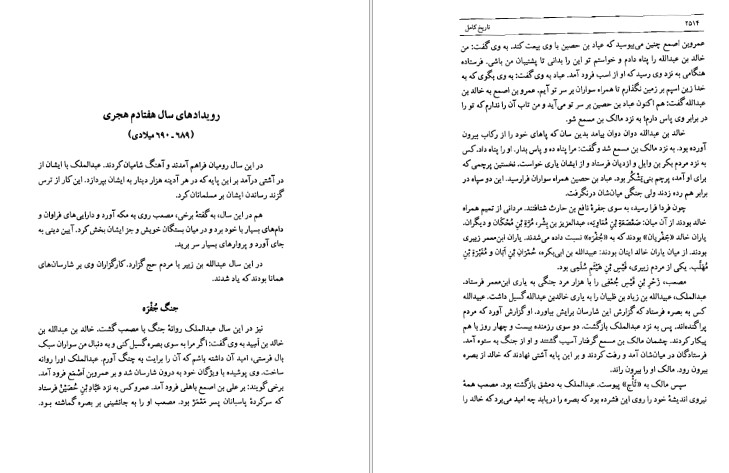 رویدادهای سال هفتادم هجری
(۶۸۹ ـ ۶۹۰ میلادی)
در این سال رومیان فراهم آمدند و آهنگ شامیان کردند. عبدالملک با ایشان از
در آشتی درآمد بر این پایه که در هر آدینه هزار دینار به ایشان بپردازد. این کار از ترس
گزند رساندن ایشان بر مسلمانان کرد.
هم در این سال، به گفتهٔ برخی، مصعب روی به مکه آورد و دارایی‌های فراوان و
دام‌های بسیار با خود برد و در میان بستگان خویش و جز ایشان بخش کرد. آیین دینی به
جای آورد و پروارهای بسیار سر برید.
در این سال عبدالله بن زبیر با مردم حج گزارد. کارگزاران وی بر شارسان‌های
همانا بودند که یاد شدند.
جنگ جُفْرَه
نیز در این سال عبدالملک روانهٔ جنگ با مصعب گشت. خالد بن عبدالله بن
خالد بن اَسِید به وی گفت: اگر مرا به سوی بصره گسیل کنی و به دنبال من سواران سبک
بال فرستی، امید آن داشته باشم که آن را برایت به چنگ آورم. عبدالملک او را روانه
ساخت. وی پوشیده با ویژگان خود به درون شارسان شد و بر عمرو بن اَصْمَع فرود آمد.
برخی گویند: بر علی بن اصمع باهلی فرود آمد. عمرو کس به نزد عَبّاد بْنِ حُصَیْن فرستاد
که سرکردهٔ پاسبانان پسر مَعْمَر بود. مصعب او را به جانشینی بر بصره گماشته بود.
۲۵۱۴
تاریخ کامل
عمروبن اصمع چنین می‌بیوسید که عباد بن حصین با وی بیعت کند. به وی گفت: من
خالد بن عبدالله را پناه دادم و خواستم تو این را بدانی تا پشتیبان من باشی. فرستاده
هنگامی به نزد وی رسید که او از اسب فرود آمد. عباد به وی گفت: به وی بگوی که به
خدا زین اسپم بر زمین نگذارم تا همراه سواران بر سر تو آیم. عمرو بن اصمع به خالد بن
عبدالله گفت: هم اکنون عباد بن حصین بر سر تو می‌آید و من تاب آن را ندارم که تو را
در برابر وی پاس دارم؛ به نزد مالک بن مسمع شو.
خالد بن عبدالله دوان دوان پیامد بدین سان که پاهای خود را از رکاب بیرون
آورده بود. به نزد مالک بن مسمع شد و گفت: مرا پناه ده و پاس بدار. او را پناه داد، کس
به نزد مردم بکر بن وایل و ازدیان فرستاد و از ایشان یاری خواست. نخستین پرچمی که
برای او آمد، پرچم بنی‌یَشْکُر بود. عباد بن حصین همراه سواران فرارسید. این دو سپاه در
برابر هم رده زدند ولی جنگی میان‌شان درنگرفت.
چون فردا فرا رسید، به سوی جفرهٔ نافع بن حارث شتافتند. مردانی از تمیم همراه
خالد بودند از آن میان: صَعْصَعَةِ بْنِ مُعاوِیَه، عبدالعزیز بن بِشْر، مُرَّةِ بْنِ مُحْکان و دیگران.
یاران خالد «جُفْریان» بودند که به «جُفْرَه» نسبت داده می‌شدند. یاران ابن‌معمر زبیری
بودند. از میان یاران خالد اینان بودند: عبیدالله بن ابی‌بکره، حُمْرانِ بْنِ اَبان و مُغَیْرَةِ بْنِ
مُهَلَّب. یکی از مردم زبیری، قَیْسِ بْنِ هَیْثَم سُلَمِی بود.
مصعب، زَحْرِ بْنِ قَیْسِ جُعْفی را با هزار مرد جنگی به یاری ابن‌معمر فرستاد.
عبدالملک، عبیدالله بن زیاد بن ظبیان را به یاری خالدبن عبدالله گسیل داشت. عبیدالله
کس به بصره فرستاد که گزارش این شارسان برایش بیاورد. او گزارش آورد که مردم
پراگنده‌اند. پس به نزد عبدالملک بازگشت. دو سوی رزمنده بیست و چهار روز با هم
پیکار کردند. چشمان مالک بن مسمع گرفتار آسیب گشتند و او از جنگ به ستوه آمد.
فرستادگان در میان‌شان آمد و رفت کردند و بر این پایه آشتی نهادند که خالد از بصره
بیرون رود. مالک او را بیرون راند.
سپس مالک به «ثَأْج» پیوست. عبدالملک به دمشق بازگشته بود. مصعب همهٔ
نیروی اندیشهٔ خود را روی این فشرده بود که بصره را دریابد چه امید می‌برد که خالد را